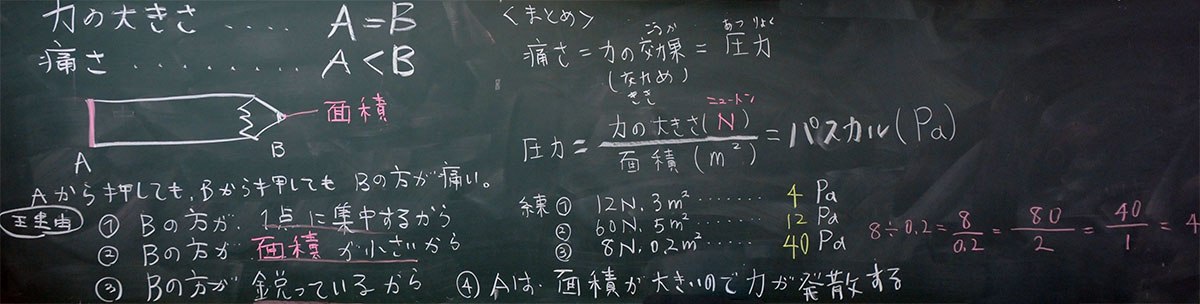 力の大きさ ........ A=B
痛さ ............ A<B
面積
A
B
Aから押しても、Bから押しても Bの方が痛い。
理由
① Bの方が、1点に集中するから
② Bの方が 面積が小さいから
③ Bの方が 鋭っているから
④ Aは、面積が大きいので力が発散する
<まとめ>
こうか
あつりょく
痛さ = 力の効果 = 圧力
きき
ニュートン
圧力 = 力の大きさ(N) / 面積 (m²) = パスカル(Pa)
練 ① 12N、3m² ....... 4 Pa
② 60N、5m² ...... 12 Pa
③ 8N、0.2m² ..... 40 Pa
8÷0.2 = 8/0.2 = 80/2 = 40/1 = 4